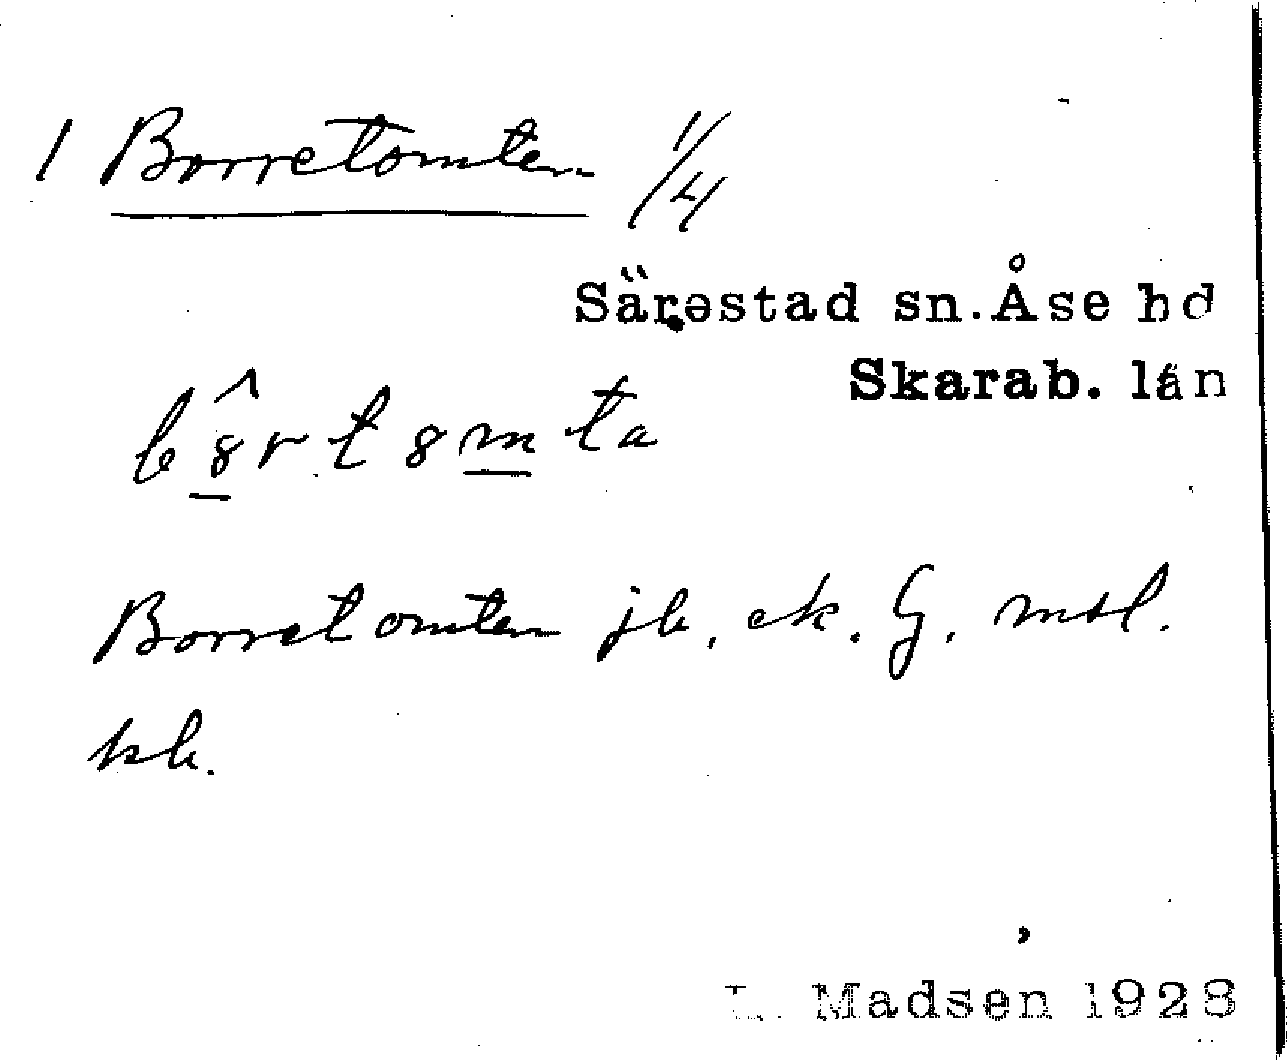 1 Borretomten 1/4
Särestad sn. Åse hd
Skarab. län
Borretomten jb, ek. G, mtl.
kb.
L. Madsen 1928